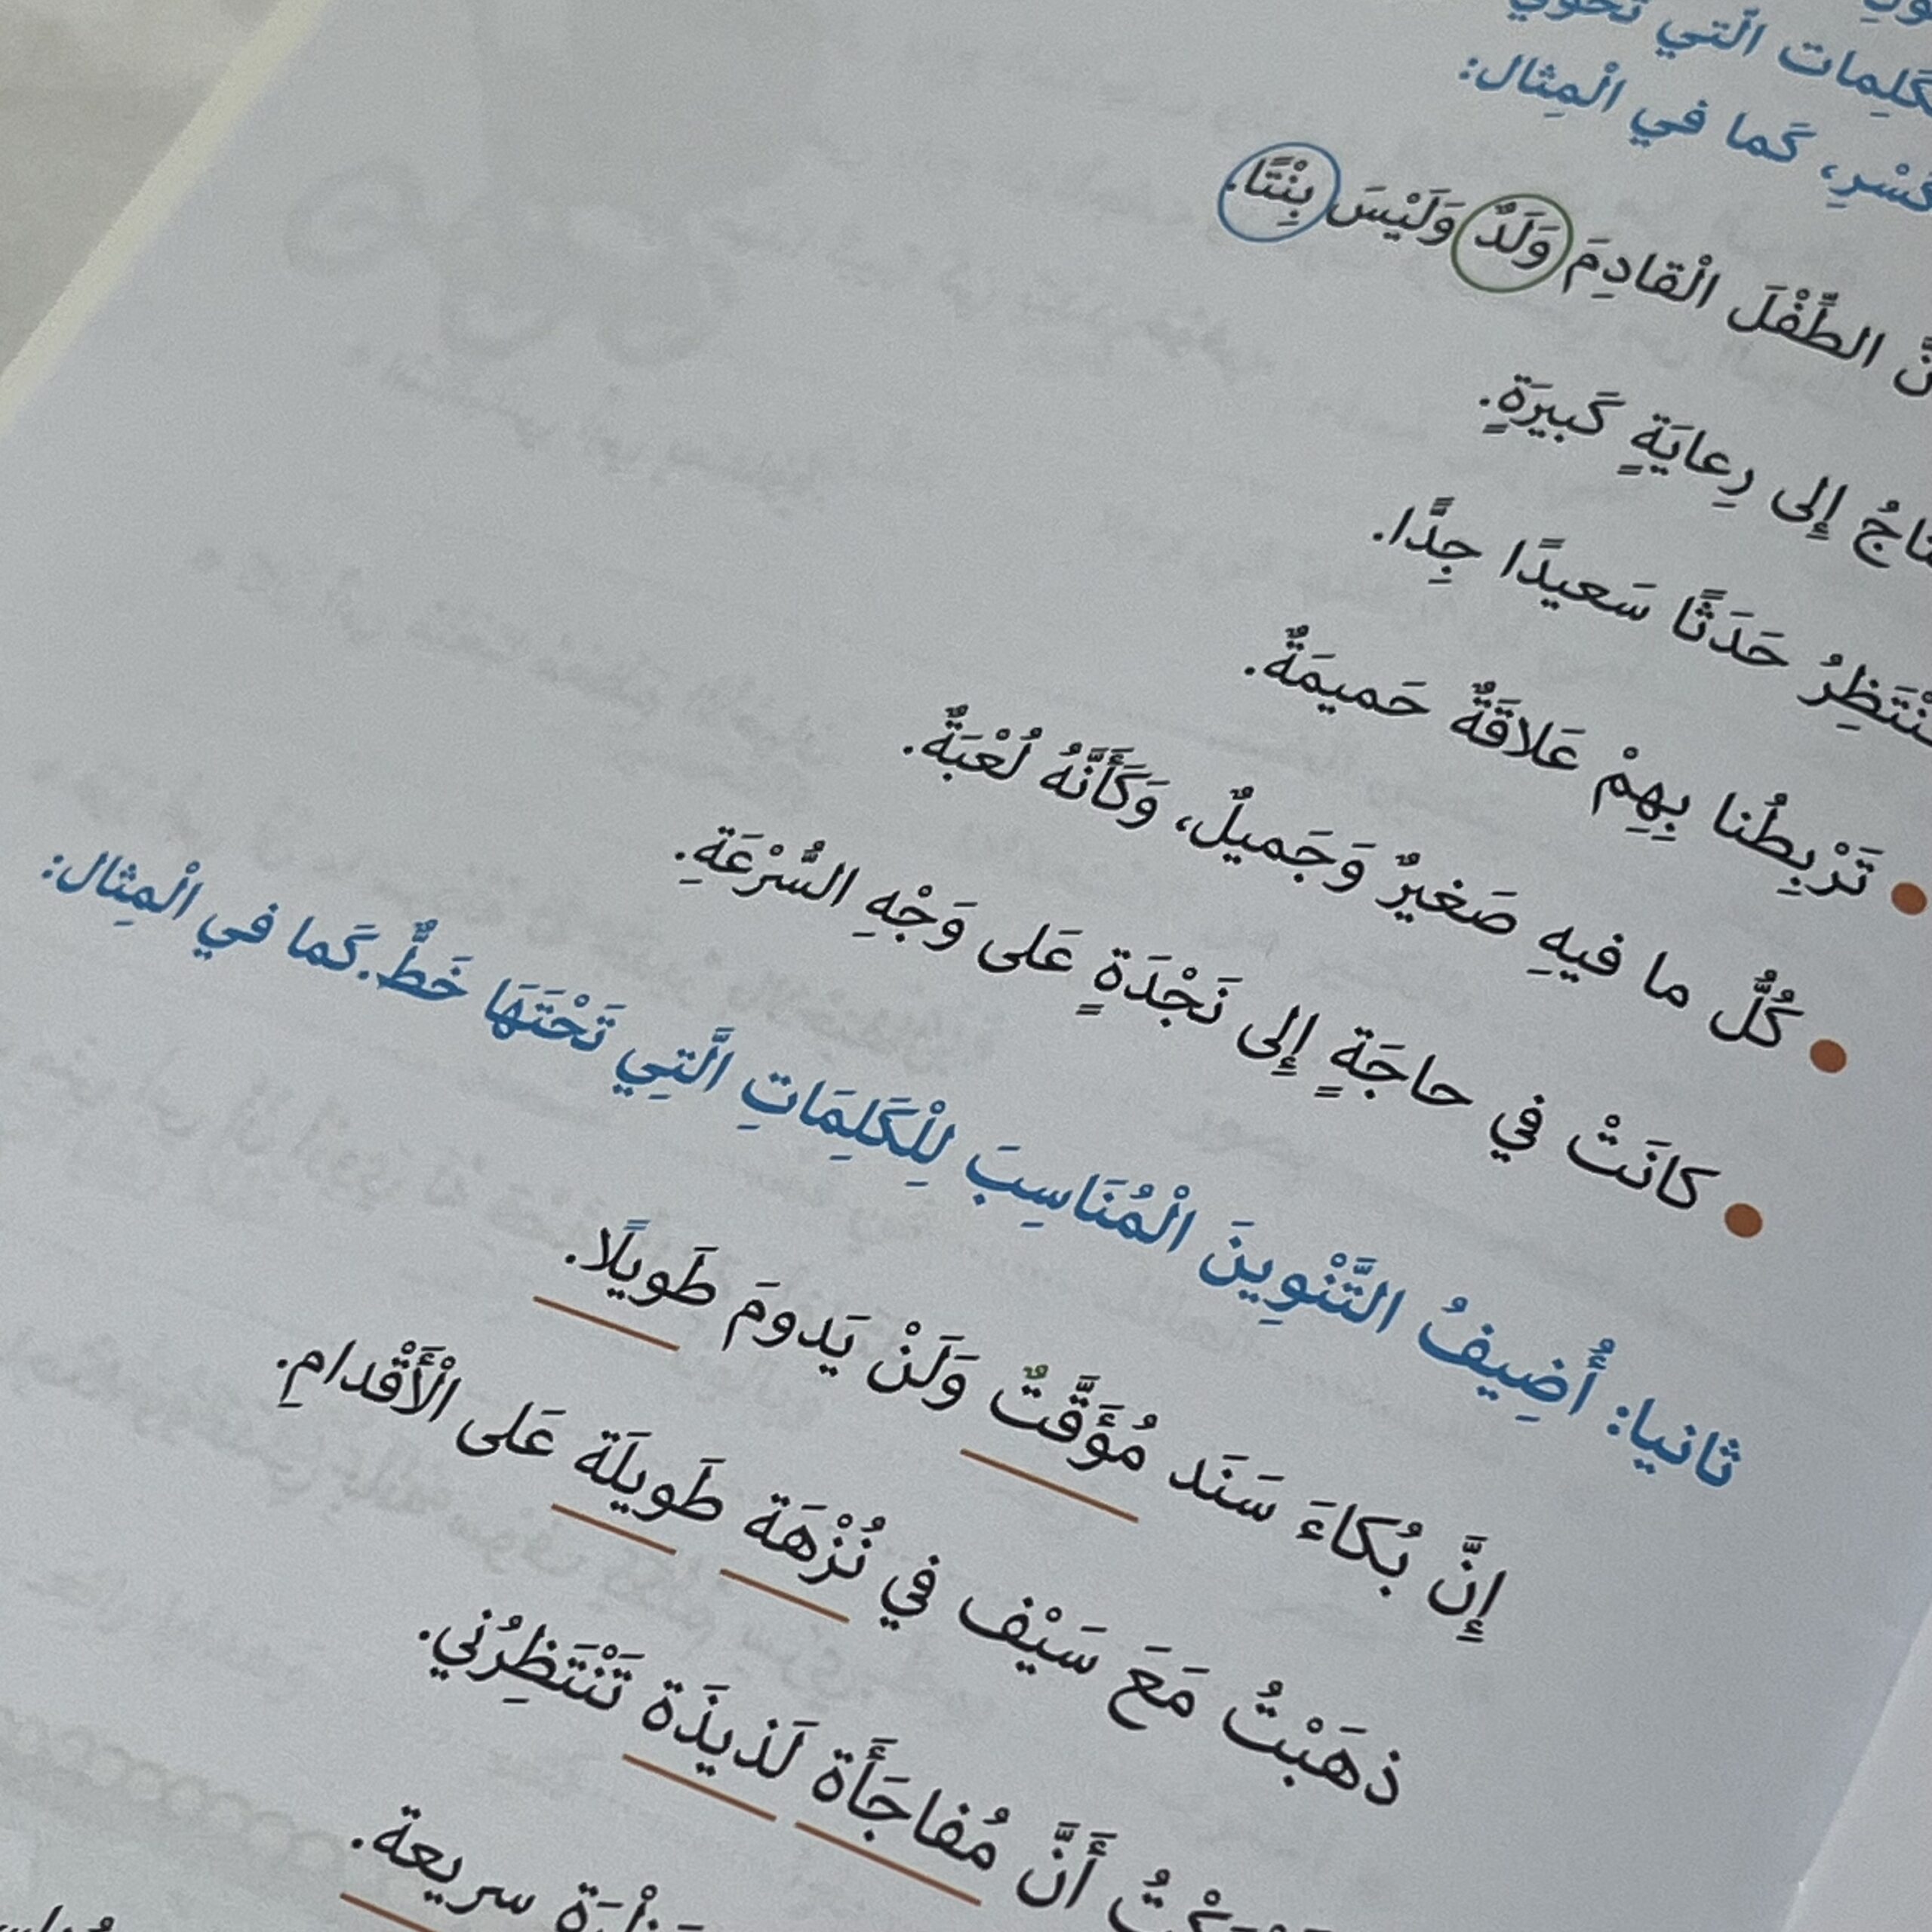 الَّتي
الْكَلِمات الَّتي تَحْوي
كَما في الْمِثال:
الطِّفْلَ الْقادِمَ وَلَدٌ وَلَيْسَ بِنْتًا.
إِلى رِعايَةٍ كَبيرَةٍ.
حَدَثًا سَعيدًا جِدًّا.
• تَرْبِطُنا بِهِمْ عَلاقَةٌ حَميمَةٌ.
• كُلُّ ما فيهِ صَغيرٌ وَجَميلٌ، وَكَأَنَّهُ لُعْبَةٌ.
• كانَتْ في حاجَةٍ إِلى نَجْدَةٍ عَلى وَجْهِ السُّرْعَةِ.
ثانيا: أُضِيفُ التَّنْوِينَ الْمُنَاسِبَ لِلْكَلِمَاتِ الَّتِي تَحْتَهَا خَطٌّ.كَما في الْمِثال:
إِنَّ بُكاءَ سَنَد مُؤَقَّتٌ وَلَنْ يَدومَ طَويلًا.
ذهَبْتُ مَعَ سَيْف في نُزْهَة طَويلَة عَلى الْأَقْدامِ.
أَنَّ مُفاجَأَة لَذيذَة تَنْتَظِرُني.
سريعة.